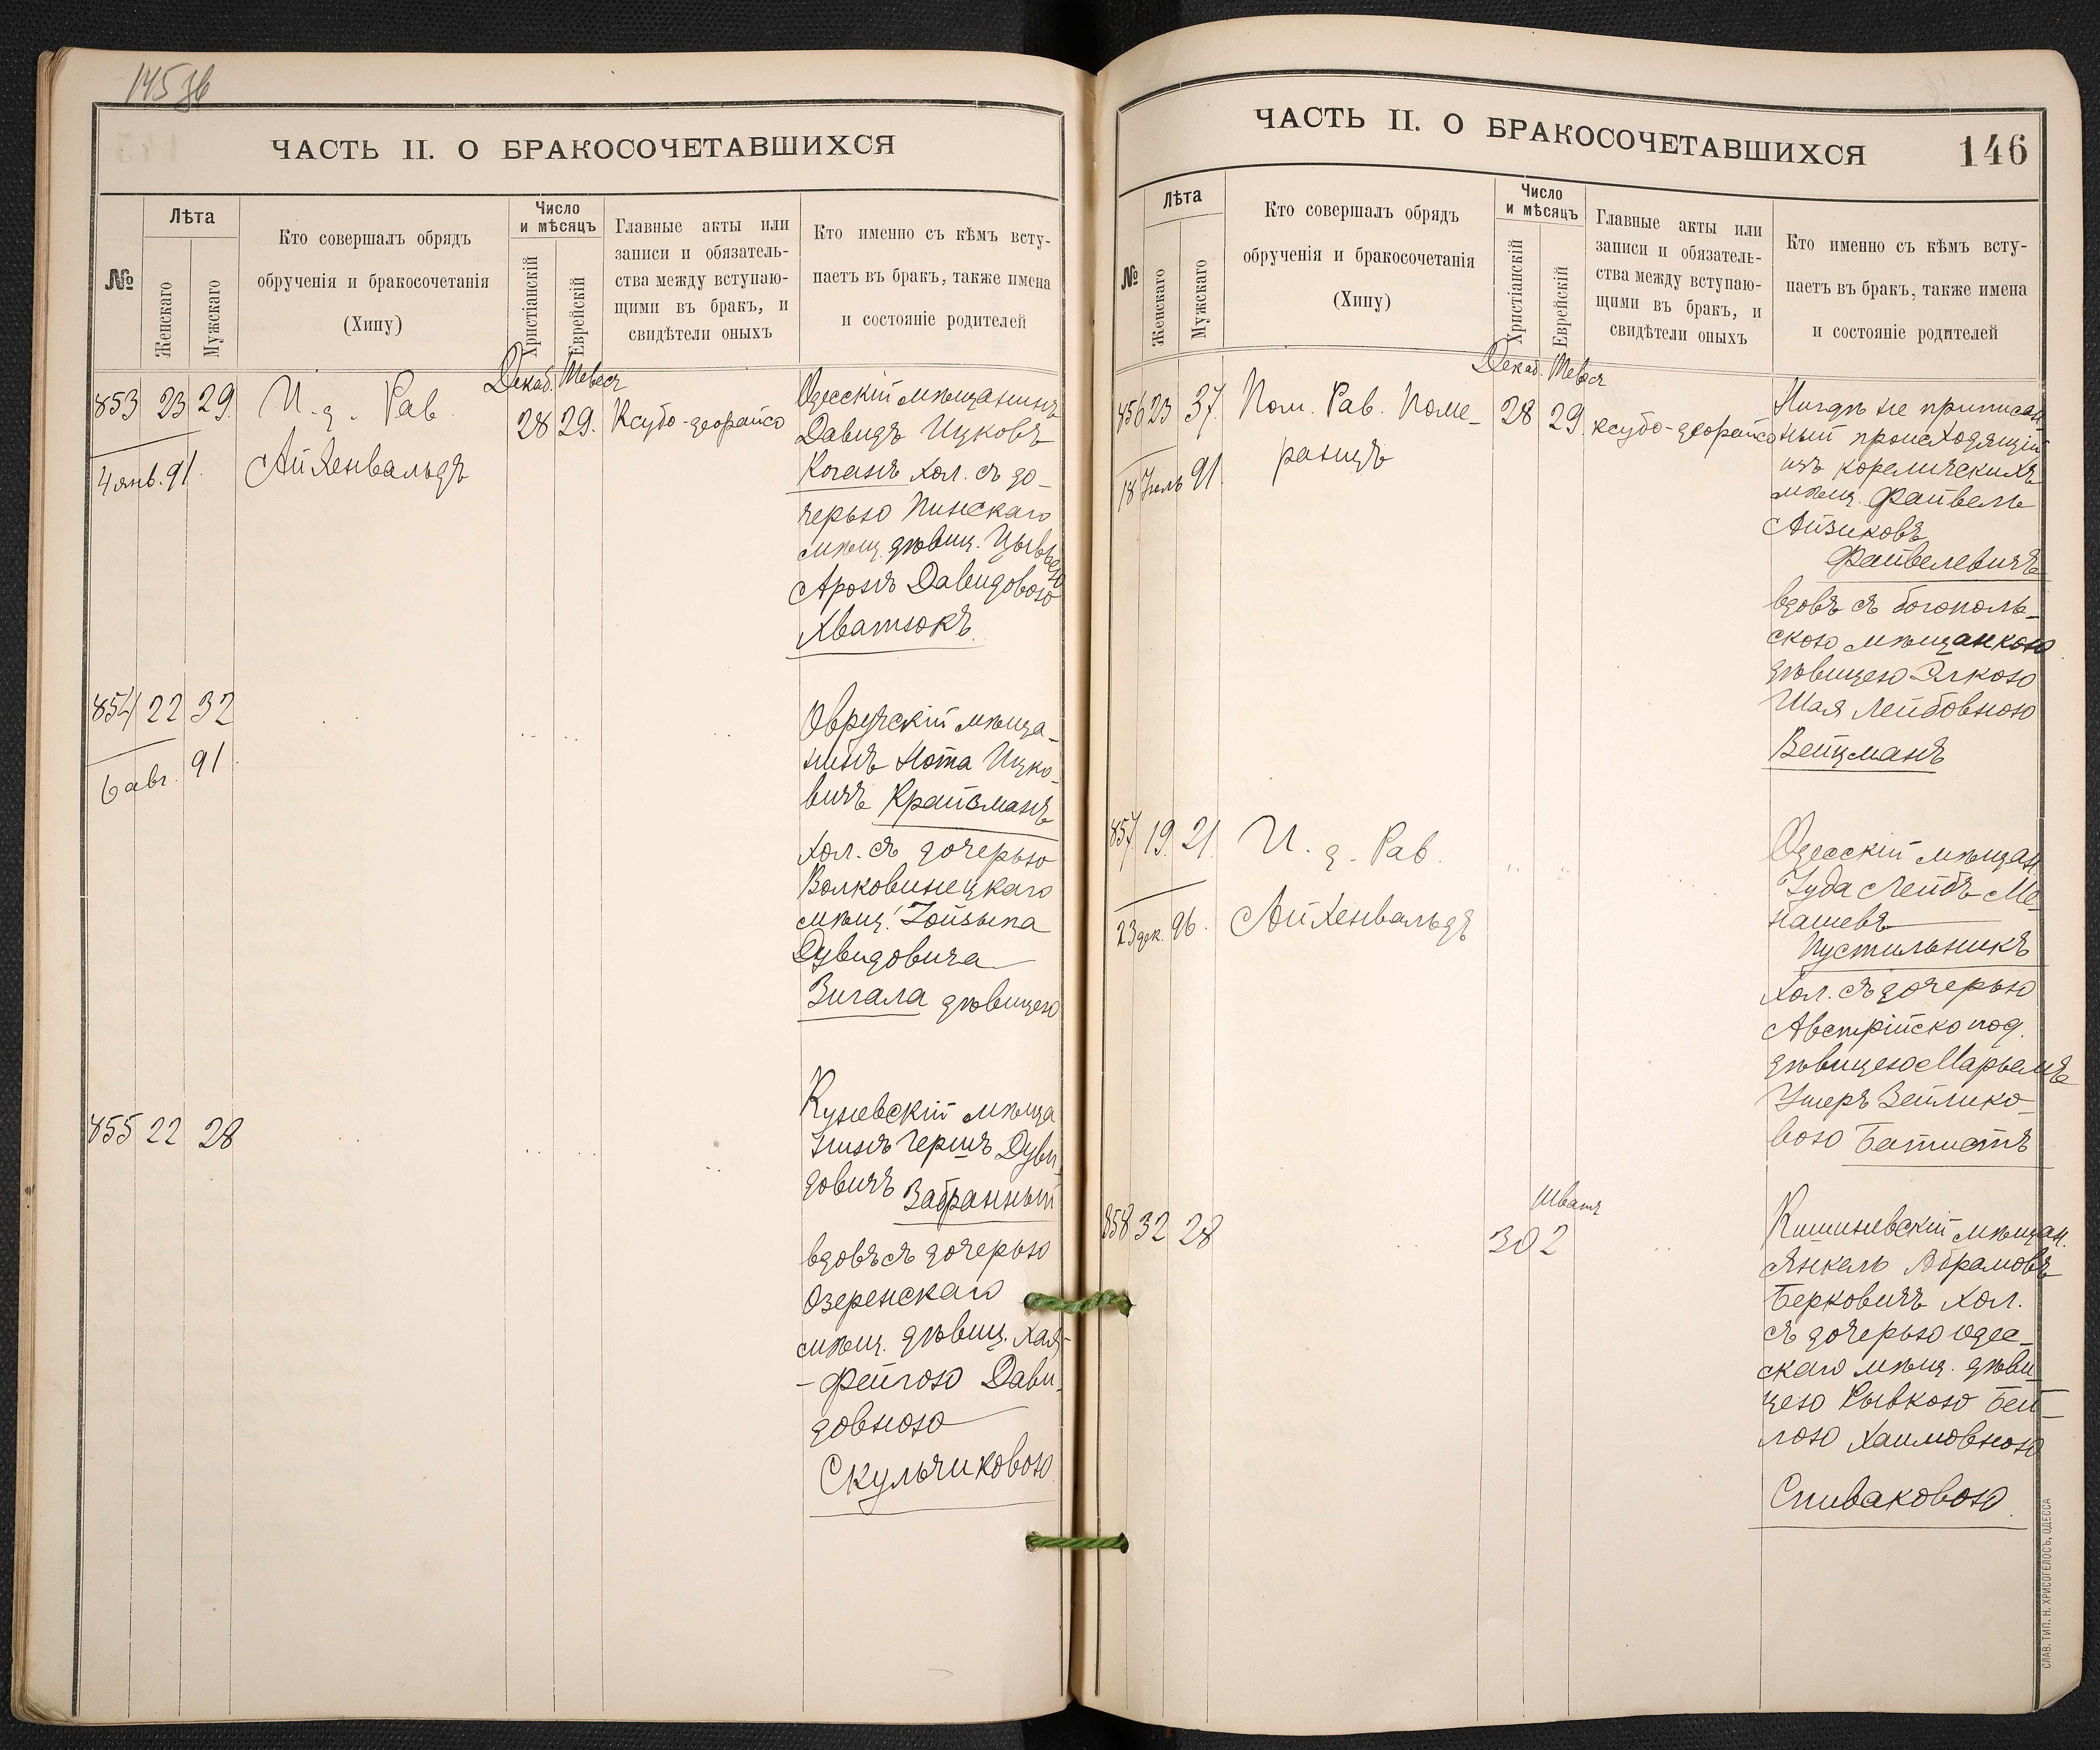 145 об
ЧАСТЬ II. О БРАКОСОЧЕТАВШИХСЯ
№
Лѣта
Женскаго
Мужскаго
Кто совершалъ обрядъ
обрученія и бракосочетанія
(Хипу)
Число
и мѣсяцъ
Христіанскій
Еврейскій
Главные акты или
записи и обязатель-
ства между вступаю-
щими въ бракъ, и
свидѣтели оныхъ
Кто именно съ кѣмъ всту-
паетъ въ бракъ, также имена
и состояніе родителей
Декаб. Тевесъ
853 23 29. И. д. Рав. 28 29. Ксубо-деорайсо
4 янв. 91.
Айхенвальдъ
Одесскій мѣщанинъ
Давидъ Ицковъ
Коганъ хол. съ до-
черью Пинскаго
мѣщ. дѣвиц. Цывьею
Аронъ Давидовою
Хватюкъ.
854 22 32
6 авг. 91.
Овручскій мѣща-
нинъ Нота Ицко-
вичъ Крайзманъ
хол. съ дочерью
Волковинецкаго
мѣщ. Іойзыпа
Дувидовича
Зигала дѣвицею
855 22 28
Куневскій мѣща
нинъ Гершъ Дуви-
довичъ Забранный
вдовъ съ дочерью
Озеренскаго
мѣщ. дѣвиц. Хая-
-Фейгою Дави-
довною
Скульчиковою
ЧАСТЬ II. О БРАКОСОЧЕТАВШИХСЯ
146
№
Лѣта
Женскаго
Мужскаго
Кто совершалъ обрядъ
обрученія и бракосочетанія
(Хипу)
Число
и мѣсяцъ
Христіанскій
Еврейскій
Главные акты или
записи и обязатель-
ства между вступаю-
щими въ бракъ, и
свидѣтели оныхъ
Кто именно съ кѣмъ всту-
паетъ въ бракъ, также имена
и состояніе родителей
Декаб. Тевесъ
856 23 37. Пом. Рав. Поме- 28 29. ксубо-деорайсо
18 Іюль 91.
ранцъ
Нигдѣ не приписан-
ный происходящій
изъ кореличскихъ
мѣщ. Файвель
Айзиковъ
Файвелевичъ
вдовъ съ богополь-
скою мѣщанкою
дѣвицею Элкою
Шая Лейбовною
Вейцманъ
857. 19. 21. И. д. Рав.
23 дек. 96.
Айхенвальдъ
Одесскій мѣщан.
Іуда Лейбъ Ме-
нашевъ
Пустильникъ
хол. съ дочерью
Австрійско под.
дѣвицею Марьемъ
Ушеръ Зейлико-
вою Батистъ
Шватъ
858 32 28 30 2
Кишиневскій мѣщан.
Янкель Абрамовъ
Берковичъ хол.
съ дочерью одес-
скаго мѣщ. дѣви-
цею Рывкою Бей-
лою Хаимовною
Спиваковою.
СЛАВ. ТИП. Н. ХРИСОГЕЛОСЪ, ОДЕССА